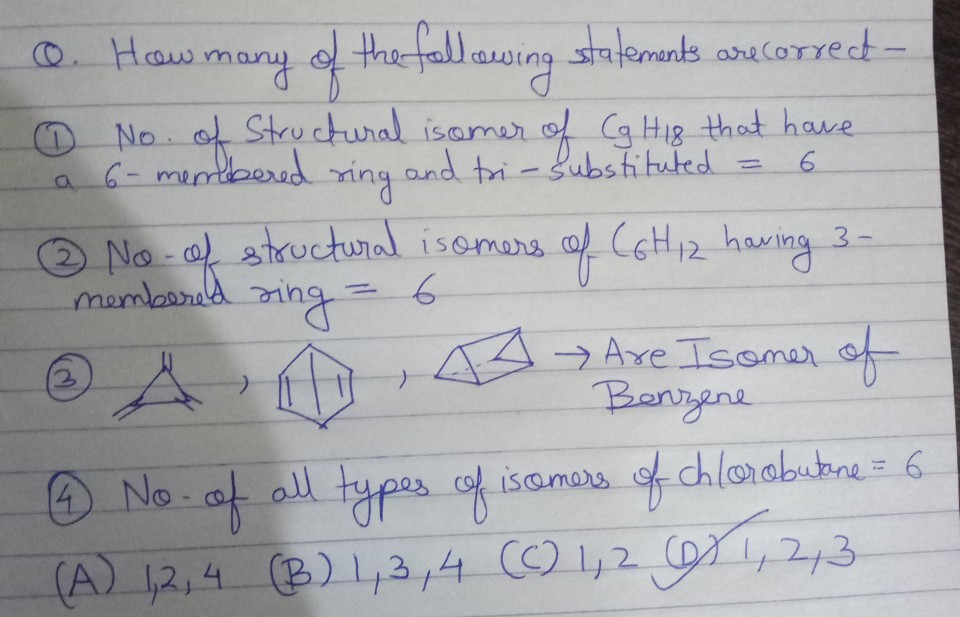 Q. How many of the following statements are correct -
① No. of Structural isomer of C9H18 that have
a 6-membered ring and tri-substituted = 6
② No-of structural isomers of C6H12 having 3-
membered ring = 6
③ , , → Are Isomer of
Benzene
④ No-of all types of isomers of chlorobutane = 6
(A) 1,2,4 (B) 1,3,4 (C) 1,2 (D) 1,2,3